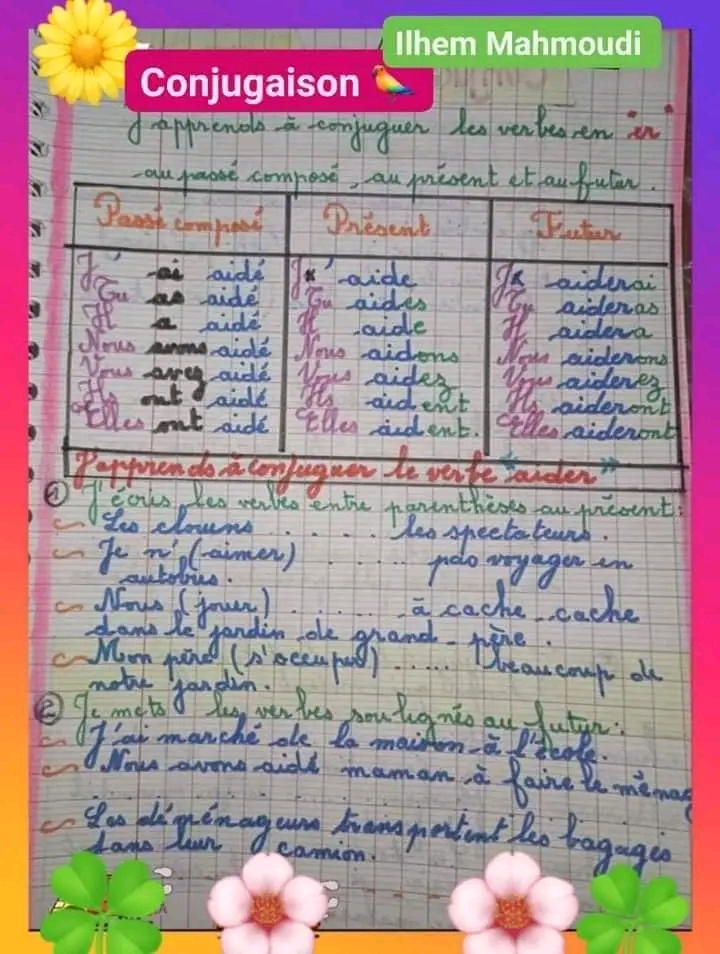 Ilhem Mahmoudi
Conjugaison
J'apprends à conjuguer les verbes en "er"
au passé composé, au présent et au futur.
Passé composé Présent Futur
J' ai aidé J' aide J' aiderai
Tu as aidé Tu aides Tu aideras
Il a aidé Il aide Il aidera
Nous avons aidé Nous aidons Nous aiderons
Vous avez aidé Vous aidez Vous aiderez
Ils ont aidé Ils aident Ils aideront
Elles ont aidé Elles aident. Elles aideront
J'apprends à conjuguer le verbe "aider"
① J'écris les verbes entre parenthèses au présent:
Les clowns . . . . . les spectateurs.
Je n' (aimer) ...... pas voyager en
autobus.
Nous (jouer) ...... à cache-cache
dans le jardin de grand-père.
Mon père (s'occuper) ..... beaucoup de
notre jardin.
② Je mets les verbes soulignés au futur:
J'ai marché de la maison à l'école.
Nous avons aidé maman à faire le ménag
Les déménageurs transportent les bagages
dans leur camion.